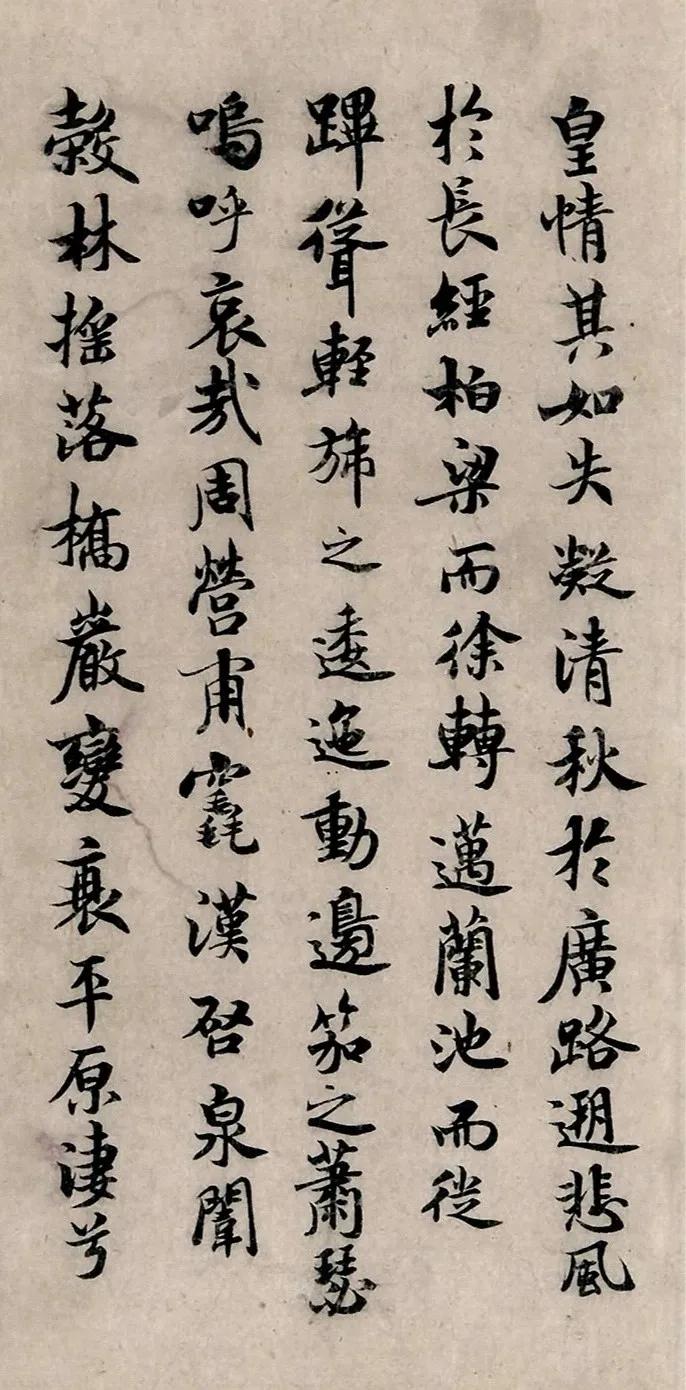 皇情其如失凝清秋於廣路遡悲風
於長經柏梁而徐轉邁蘭池而從
蹕聳輕旆之逶迤動邊笳之蕭瑟
嗚呼哀哉周營甫竁漢啓泉闈
穀林搖落橋巖變衰平原淒兮